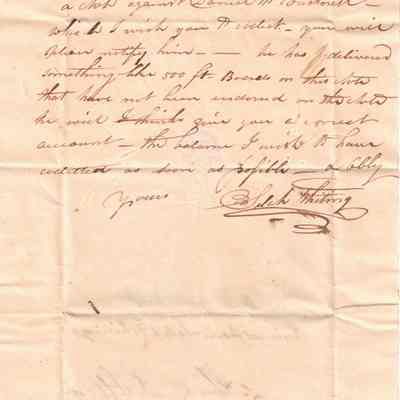 a Note against Daniel W
which I wish you to collect - you will
please notify him - he has delivered
something like 500 ft Boards on this Note
that have not been endorsed on the Note
he will I think give you a correct
account - the balance I wish to have
collected as soon as possible - 
Yours Whiting